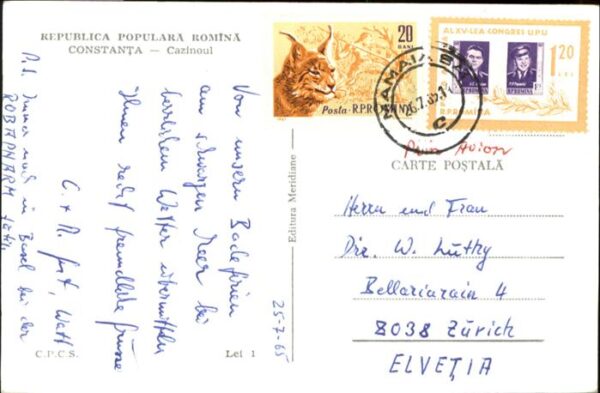 REPUBLICA POPULARĂ ROMÎNĂ
CONSTANȚA — Cazinoul
Von unsern Badeferien
am schwarzen Meer bei
herrlichem Wetter übermitteln
Ihnen recht freundliche Grüsse
C. + R.
P.S. Immer noch in Basel bei der
25-7-65
C.P.C.S.
Lei 1
Editura Meridiane
20
BANI
Posta R.P.ROMINA
AL XV-LEA CONGRES U.P.U.
1,20
LEI
R.P.ROMINA
MAMAIA
C
Prin Avion
CARTE POȘTALĂ
Herrn und Frau
Dir. W. Luthy
Bellariarain 4
8038 Zürich
ELVEȚIA